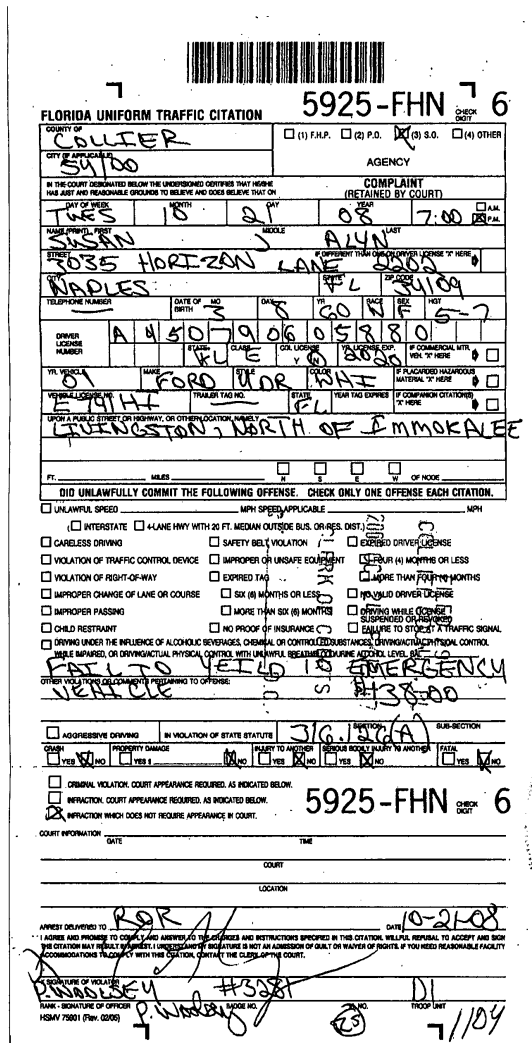 5925-FHN CHECK DIGIT 6
FLORIDA UNIFORM TRAFFIC CITATION
COUNTY OF COLLIER
(1) F.H.P. (2) P.O. (3) S.O. (4) OTHER
CITY (IF APPLICABLE) 54/00
AGENCY
IN THE COURT DESIGNATED BELOW THE UNDERSIGNED CERTIFIES THAT HE/SHE
HAS JUST AND REASONABLE GROUNDS TO BELIEVE AND DOES BELIEVE THAT ON
COMPLAINT
(RETAINED BY COURT)
DAY OF WEEK MONTH DAY YEAR A.M.
TUES 10 21 08 7:00 P.M.
NAME (PRINT) FIRST MIDDLE LAST
SUSAN J ALYN
STREET IF DIFFERENT THAN ONE ON DRIVER LICENSE "X" HERE
3035 HORIZON LANE 2202
CITY STATE ZIP CODE
NAPLES FL 34109
TELEPHONE NUMBER DATE OF BIRTH MO DAY YR RACE SEX HGT
3 8 60 N F 5-7
DRIVER LICENSE NUMBER A 450790605880
STATE CLASS CDL LICENSE YR. LICENSE EXP. IF COMMERCIAL MTR. VEH. "X" HERE
FL E Y N 2020
YR. VEHICLE MAKE STYLE COLOR IF PLACARDED HAZARDOUS MATERIAL "X" HERE
01 FORD 4DR WHI
VEHICLE LICENSE NO. TRAILER TAG NO. STATE YEAR TAG EXPIRES IF COMPANION CITATION(S) "X" HERE
FL
UPON A PUBLIC STREET OR HIGHWAY, OR OTHER LOCATION, NAMELY
LIVINGSTON, NORTH OF IMMOKALEE
FT. MILES N S E W OF NODE
DID UNLAWFULLY COMMIT THE FOLLOWING OFFENSE. CHECK ONLY ONE OFFENSE EACH CITATION.
UNLAWFUL SPEED MPH SPEED APPLICABLE MPH
( INTERSTATE 4-LANE HWY WITH 20 FT. MEDIAN OUTSIDE BUS. OR RES. DIST.)
CARELESS DRIVING SAFETY BELT VIOLATION EXPIRED DRIVER LICENSE
VIOLATION OF TRAFFIC CONTROL DEVICE IMPROPER OR UNSAFE EQUIPMENT FOUR (4) MONTHS OR LESS
VIOLATION OF RIGHT-OF-WAY EXPIRED TAG MORE THAN FOUR (4) MONTHS
IMPROPER CHANGE OF LANE OR COURSE SIX (6) MONTHS OR LESS NO VALID DRIVER LICENSE
IMPROPER PASSING MORE THAN SIX (6) MONTHS DRIVING WHILE LICENSE SUSPENDED OR REVOKED
CHILD RESTRAINT NO PROOF OF INSURANCE FAILURE TO STOP AT A TRAFFIC SIGNAL
DRIVING UNDER THE INFLUENCE OF ALCOHOLIC BEVERAGES, CHEMICAL OR CONTROLLED SUBSTANCES, DRIVING/ACTUAL PHYSICAL CONTROL
WHILE IMPAIRED, OR DRIVING/ACTUAL PHYSICAL CONTROL WITH UNLAWFUL BREATH/BLOOD/URINE ALCOHOL LEVEL
FAIL TO YEILD TO EMERGENCY
OTHER VIOLATIONS OR COMMENTS PERTAINING TO OFFENSE:
VEHICLE $138.00
AGGRESSIVE DRIVING IN VIOLATION OF STATE STATUTE SECTION SUB-SECTION
316.126(A)
CRASH PROPERTY DAMAGE INJURY TO ANOTHER SERIOUS BODILY INJURY TO ANOTHER FATAL
YES NO YES $ NO YES NO YES NO YES NO
CRIMINAL VIOLATION. COURT APPEARANCE REQUIRED. AS INDICATED BELOW.
INFRACTION. COURT APPEARANCE REQUIRED. AS INDICATED BELOW.
INFRACTION WHICH DOES NOT REQUIRE APPEARANCE IN COURT.
5925-FHN CHECK DIGIT 6
COURT INFORMATION
DATE TIME
COURT
LOCATION
ARREST DELIVERED TO ROR DATE 10-21-08
I AGREE AND PROMISE TO COMPLY AND ANSWER TO THE CHARGES AND INSTRUCTIONS SPECIFIED IN THIS CITATION. WILLFUL REFUSAL TO ACCEPT AND SIGN
THE CITATION MAY RESULT IN ARREST. I UNDERSTAND MY SIGNATURE IS NOT AN ADMISSION OF GUILT OR WAIVER OF RIGHTS. IF YOU NEED REASONABLE FACILITY
ACCOMMODATIONS TO COMPLY WITH THIS CITATION, CONTACT THE CLERK OF THE COURT.
X SIGNATURE OF VIOLATOR
P. WOOLSEY #3281 D1
RANK - SIGNATURE OF OFFICER BADGE NO. ID NO. TROOP UNIT
HSMV 75901 (Rev. 02/05) P. Woolsey 25 1104